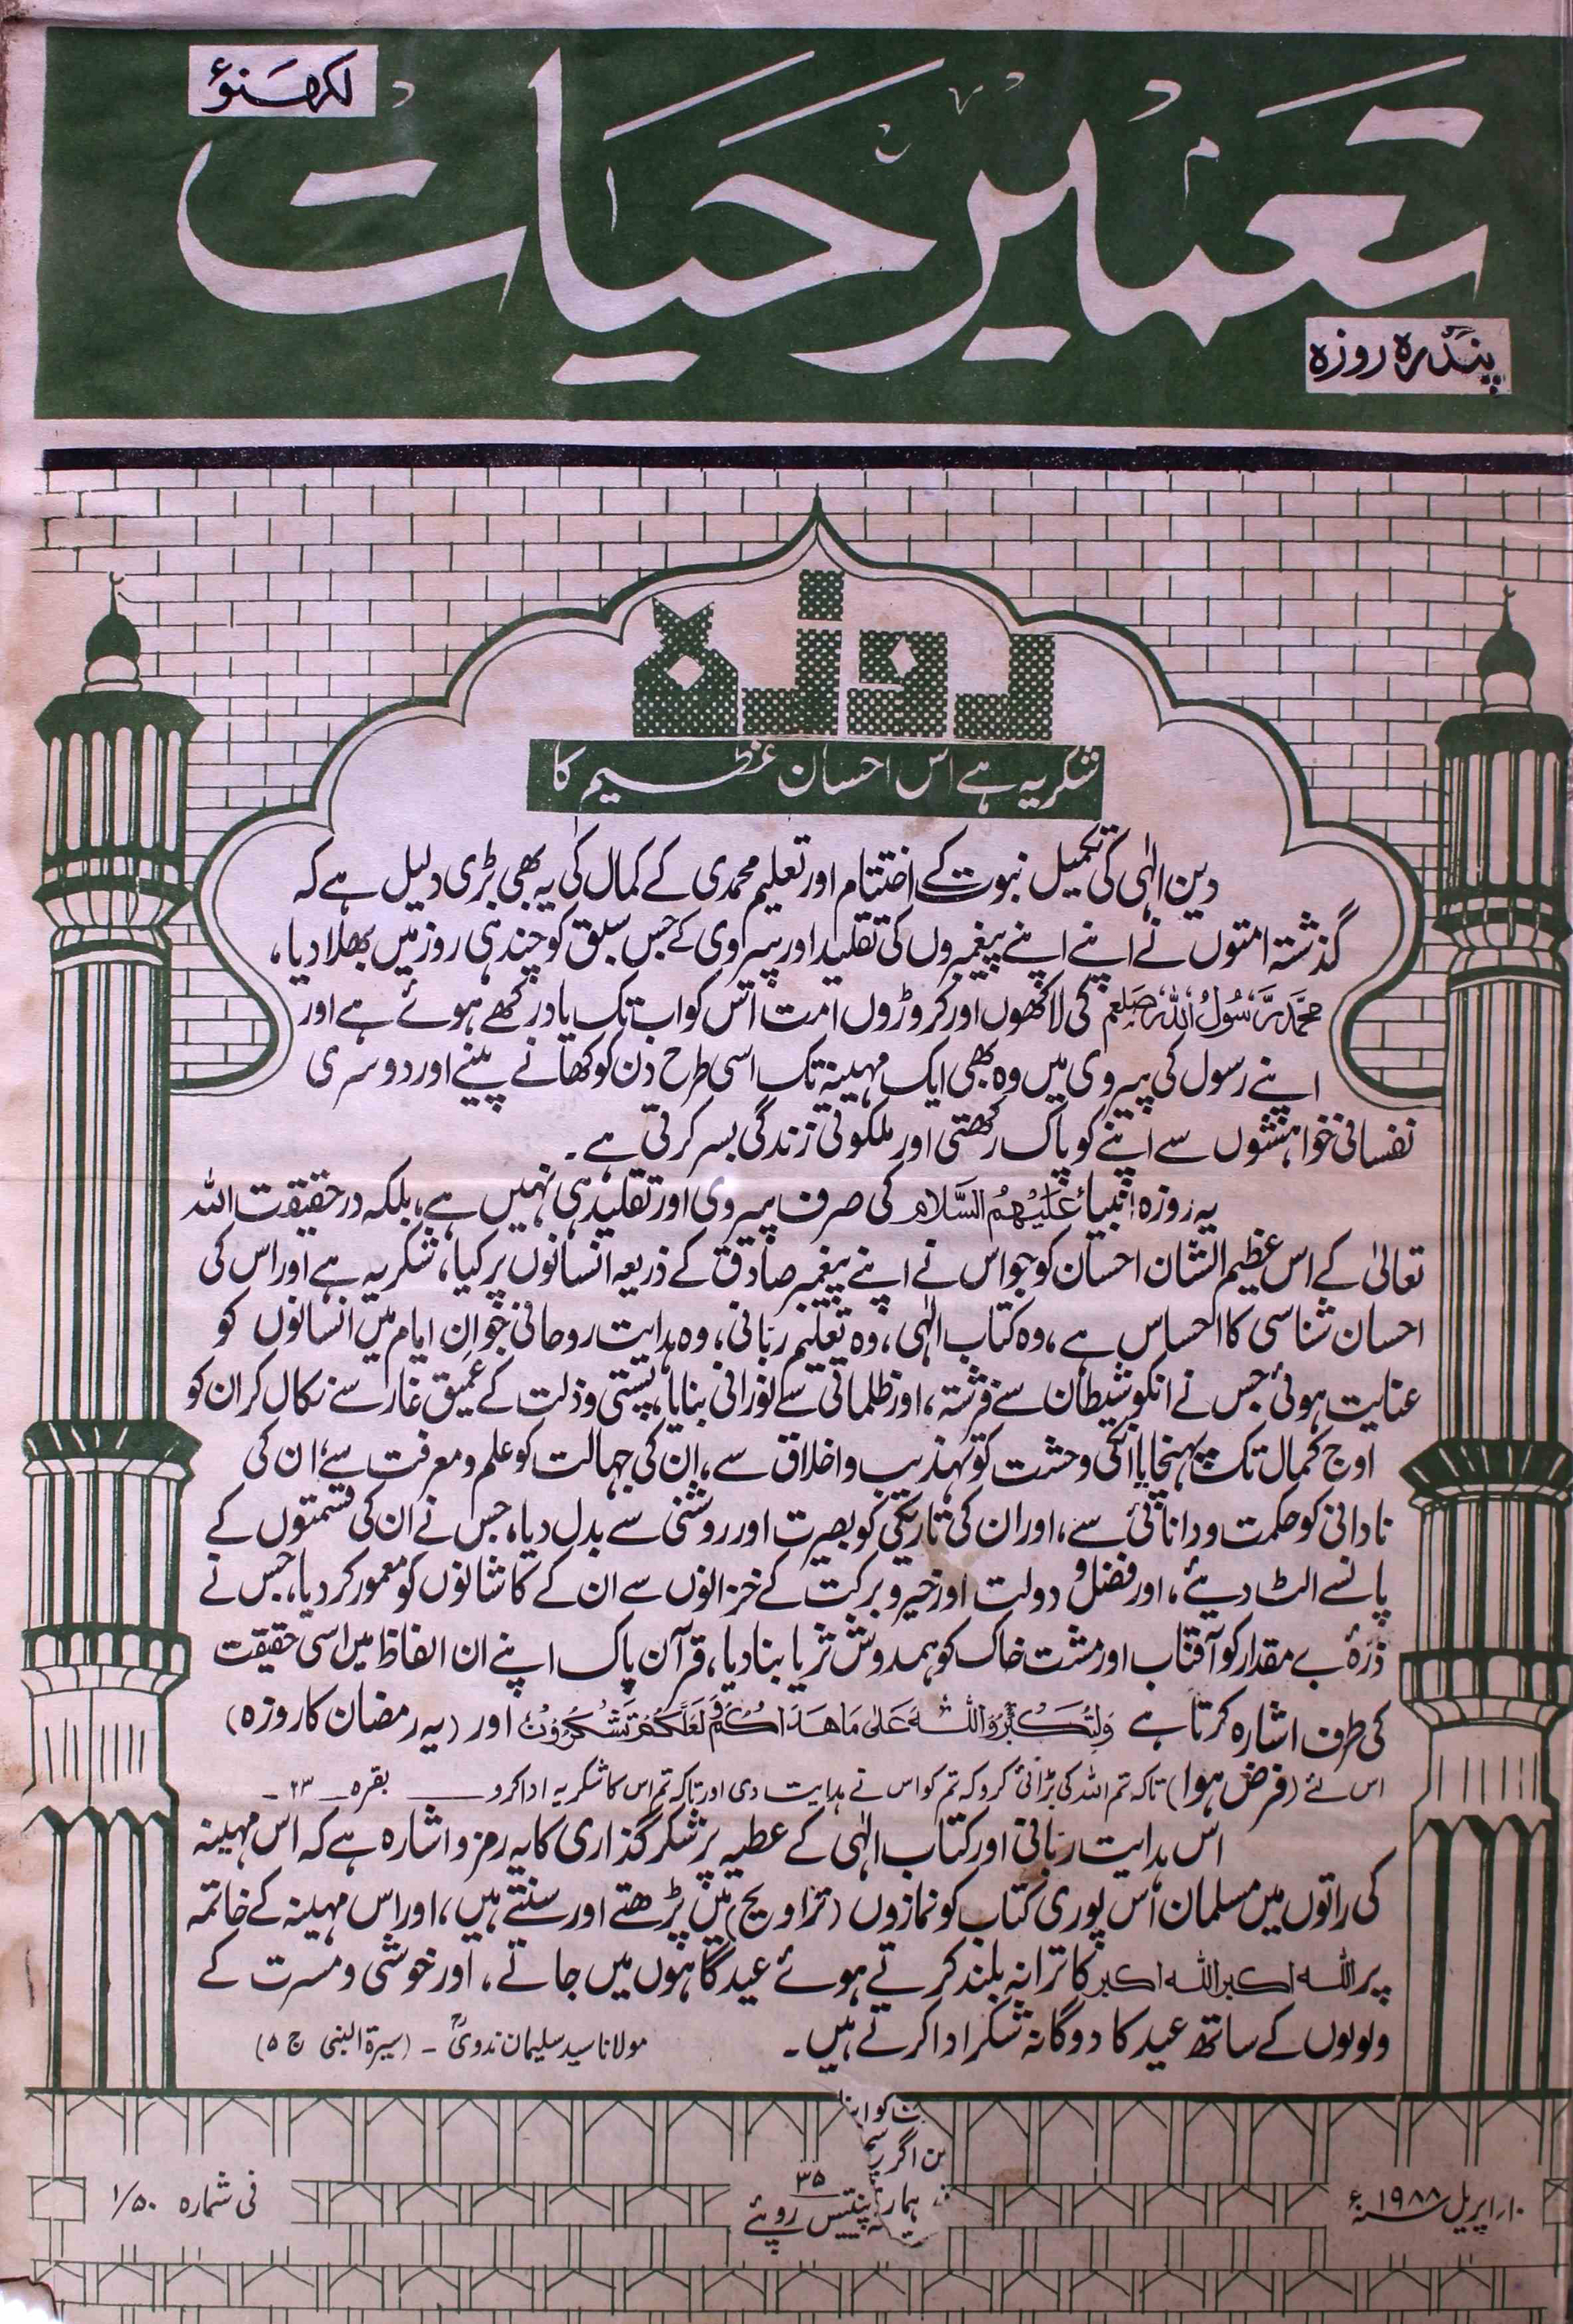 لکھنؤ
تعمیر حیات
پندرہ روزہ
روزہ
شکریہ ہے اس احسان عظیم کا
دین الٰہی کی تکمیل نبوت کے اختتام اور تعلیم محمدی کے کمال کی یہ بھی بڑی دلیل ہے کہ
گذشتہ امتوں نے اپنے اپنے پیغمبروں کی تقلید اور پیروی کے جس سبق کو چند ہی روز میں بھلا دیا،
محمد رسول اللہ صلعم کی لاکھوں اور کروڑوں امت اس کو اب تک یاد رکھے ہوئے ہے اور
اپنے رسول کی پیروی میں وہ بھی ایک مہینہ تک اسی طرح دن کو کھانے پینے اور دوسری
نفسانی خواہشوں سے اپنے کو پاک رکھتی اور ملکوتی زندگی بسر کرتی ہے۔
یہ روزہ انبیاء عَلَیْہِمُ السَّلَام کی صرف پیروی اور تقلید ہی نہیں ہے، بلکہ در حقیقت اللہ
تعالیٰ کے اس عظیم الشان احسان کو جو اس نے اپنے پیغمبر صادق کے ذریعہ انسانوں پر کیا، شکریہ ہے اور اس کی
احسان شناسی کا احساس ہے، وہ کتاب الٰہی، وہ تعلیم ربانی، وہ ہدایت روحانی جو ان ایام میں انسانوں کو
عنایت ہوئی جس نے انکو شیطان سے فرشتہ، اور ظلماتی سے نورانی بنایا، پستی و ذلت کے عمیق غار سے نکال کر ان کو
اوج کمال تک پہنچایا انکی وحشت کو تہذیب و اخلاق سے، ان کی جہالت کو علم و معرفت سے، ان کی
نادانی کو حکمت و دانائی سے، اور ان کی تاریکی کو بصیرت اور روشنی سے بدل دیا، جس نے ان کی قسمتوں کے
پانسے الٹ دیئے، اور فضل و دولت اور خیر و برکت کے خزانوں سے ان کے کاشانوں کو معمور کر دیا، جس نے
ذرۂ بے مقدار کو آفتاب اور مشت خاک کو ہمدوش ثریا بنا دیا، قرآن پاک اپنے ان الفاظ میں اسی حقیقت
کی طرف اشارہ کرتا ہے وَلِتُکَبِّرُوا اللّٰہَ عَلٰی مَا ھَدَاکُمْ وَلَعَلَّکُمْ تَشْکُرُوْنَ اور (یہ رمضان کا روزہ)
اس لئے (فرض ہوا) تاکہ تم اللہ کی بڑائی کرو کہ تم کو اس نے ہدایت دی اور تاکہ تم اس کا شکریہ ادا کرو ــــــ بقرہ ــ ۲۳ ــ
اس ہدایت ربانی اور کتاب الٰہی کے عطیہ پر شکر گذاری کا یہ رمز و اشارہ ہے کہ اس مہینہ
کی راتوں میں مسلمان اس پوری کتاب کو نمازوں (تراویح) میں پڑھتے اور سنتے ہیں، اور اس مہینہ کے خاتمہ
پر اللہ اکبر اللہ اکبر کا ترانہ بلند کرتے ہوئے عیدگاہوں میں جاتے، اور خوشی و مسرت کے
ولولوں کے ساتھ عید کا دوگانہ شکر ادا کرتے ہیں۔
مولانا سید سلیمان ندویؒ ــ (سیرۃ النبی ج ۵)
۱۰؍ اپریل ۱۹۸۸ء
۳۵
پینتیس روپئے
فی شمارہ ۱/۵۰